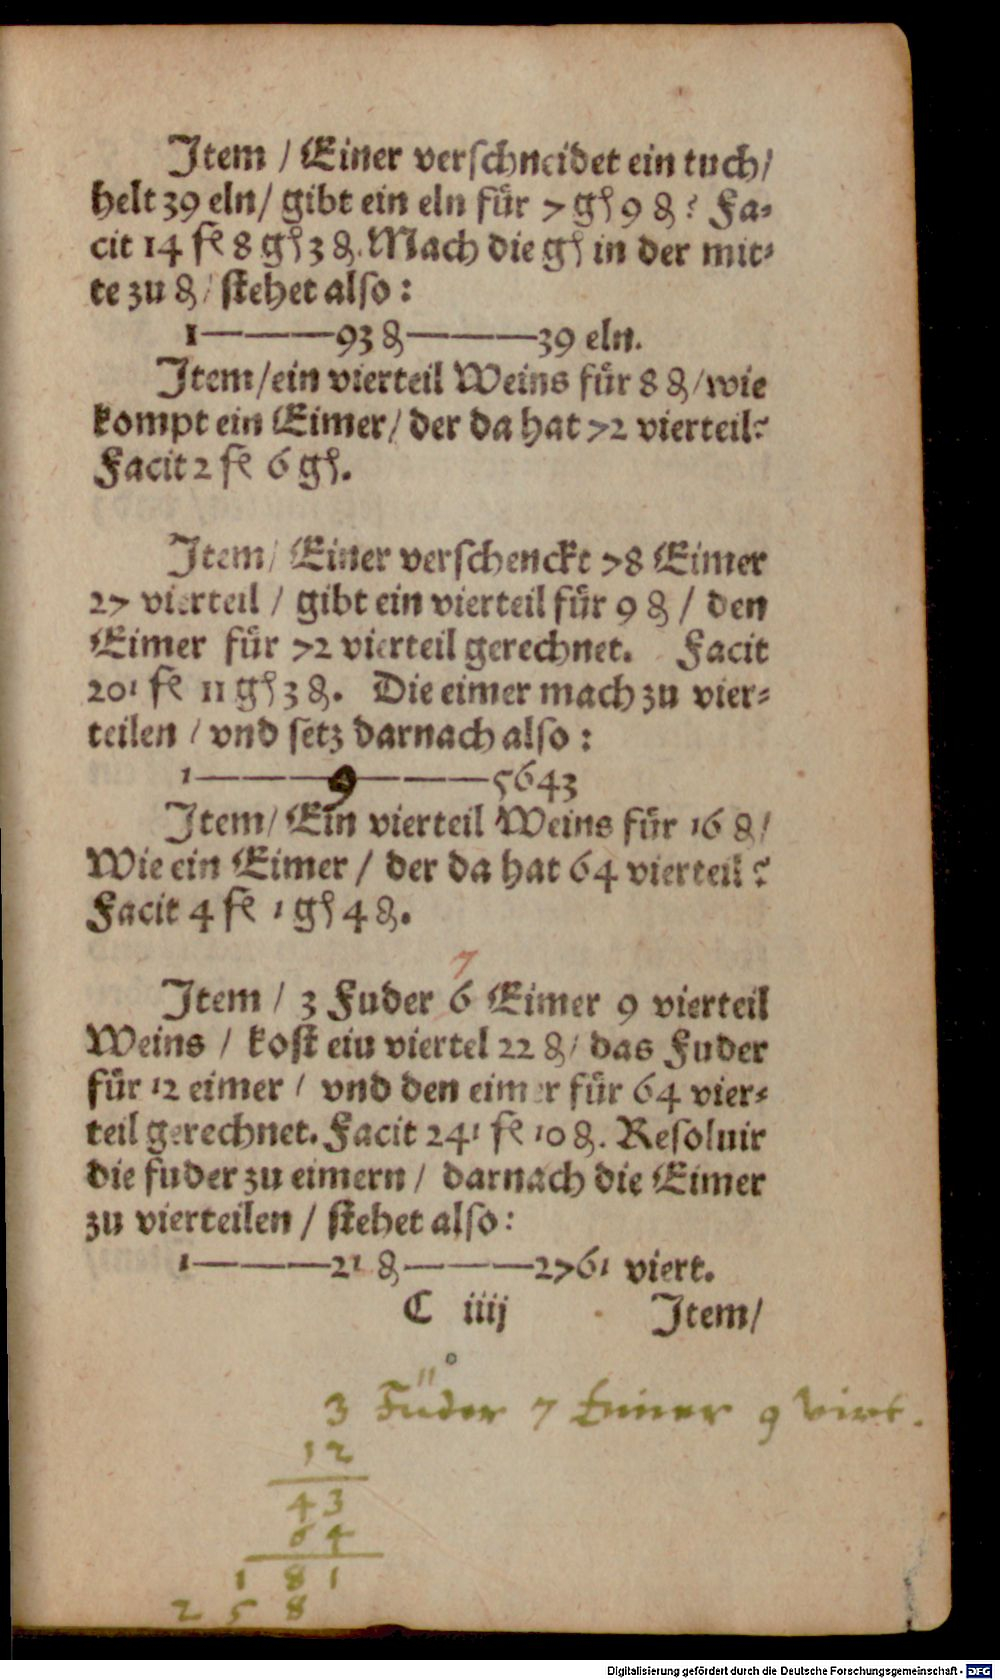 Item / Einer verschneidet ein tuch /
helt 39 eln / gibt ein eln für 7 gß 9 ₰? Fa⸗
cit 14 fl 8 gß 3 ₰. Mach die gß in der mit⸗
te zu ₰ / stehet also:
1———93 ₰———39 eln.
Item / ein vierteil Weins für 8 ₰ / wie
kompt ein Eimer / der da hat 72 vierteil?
Facit 2 fl 6 gß.
Item / Einer verschenckt 78 Eimer
27 vierteil / gibt ein vierteil für 9 ₰ / den
Eimer für 72 vierteil gerechnet. Facit
201 fl 11 gß 3 ₰. Die eimer mach zu vier⸗
teilen / vnd setz darnach also:
1———9———5643
Item / Ein vierteil Weins für 16 ₰ /
Wie ein Eimer / der da hat 64 vierteil?
Facit 4 fl 1 gß 4 ₰.
7
Item / 3 Fuder 6 Eimer 9 vierteil
Weins / kost eiu viertel 22 ₰ / das Fuder
für 12 eimer / vnd den eimer für 64 vier⸗
teil gerechnet. Facit 241 fl 10 ₰. Resoluir
die fuder zu eimern / darnach die Eimer
zu vierteilen / stehet also:
1———21 ₰———2761 viert.
C iiij Item /
3 Füder 7 Eimer 9 virt.
12
43
64
1 8 1
2 5 8
Digitalisierung gefördert durch die Deutsche Forschungsgemeinschaft - DFG